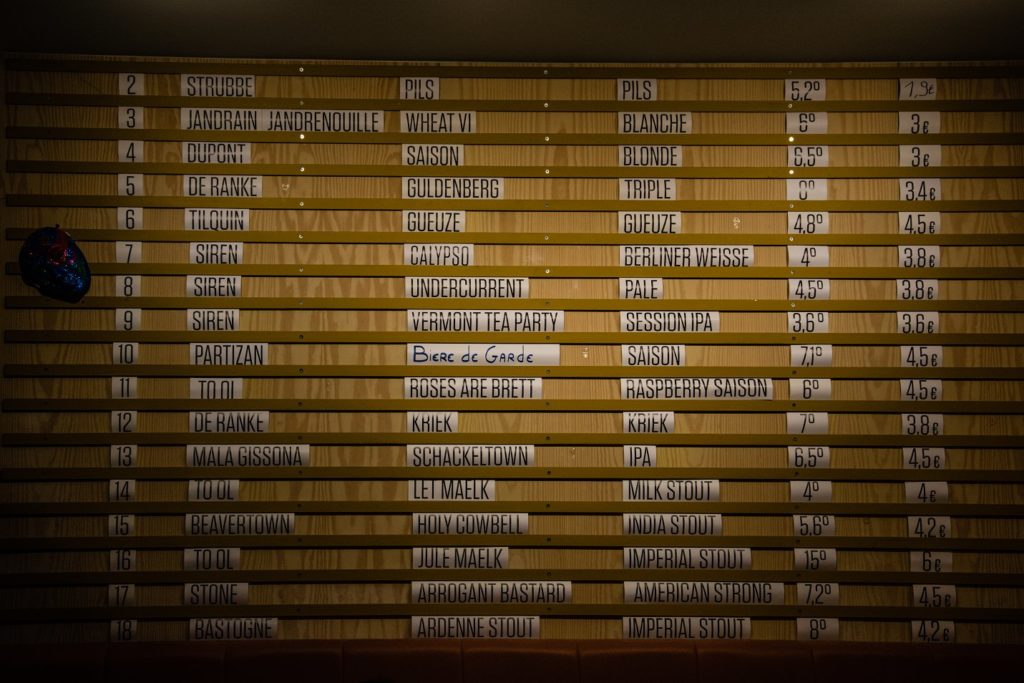 2 STRUBBE PILS PILS 5,2° 1,9€
3 JANDRAIN JANDRENOUILLE WHEAT VI BLANCHE 6° 3€
4 DUPONT SAISON BLONDE 6,5° 3€
5 DE RANKE GULDENBERG TRIPLE 3,4€
6 TILQUIN GUEUZE GUEUZE 4,8° 4,5€
7 SIREN CALYPSO BERLINER WEISSE 4° 3,8€
8 SIREN UNDERCURRENT PALE 4,5° 3,8€
9 SIREN VERMONT TEA PARTY SESSION IPA 3,6° 3,6€
10 PARTIZAN Bière de Garde SAISON 7,1° 4,5€
11 TO OL ROSES ARE BRETT RASPBERRY SAISON 6° 4,5€
12 DE RANKE KRIEK KRIEK 7° 3,8€
13 MALA GISSONA SCHACKELTOWN IPA 6,5° 4,5€
14 TO OL LET MAELK MILK STOUT 4° 4€
15 BEAVERTOWN HOLY COWBELL INDIA STOUT 5,6° 4,2€
16 TO OL JULE MAELK IMPERIAL STOUT 15° 6€
17 STONE ARROGANT BASTARD AMERICAN STRONG 7,2° 4,5€
18 BASTOGNE ARDENNE STOUT IMPERIAL STOUT 8° 4,2€